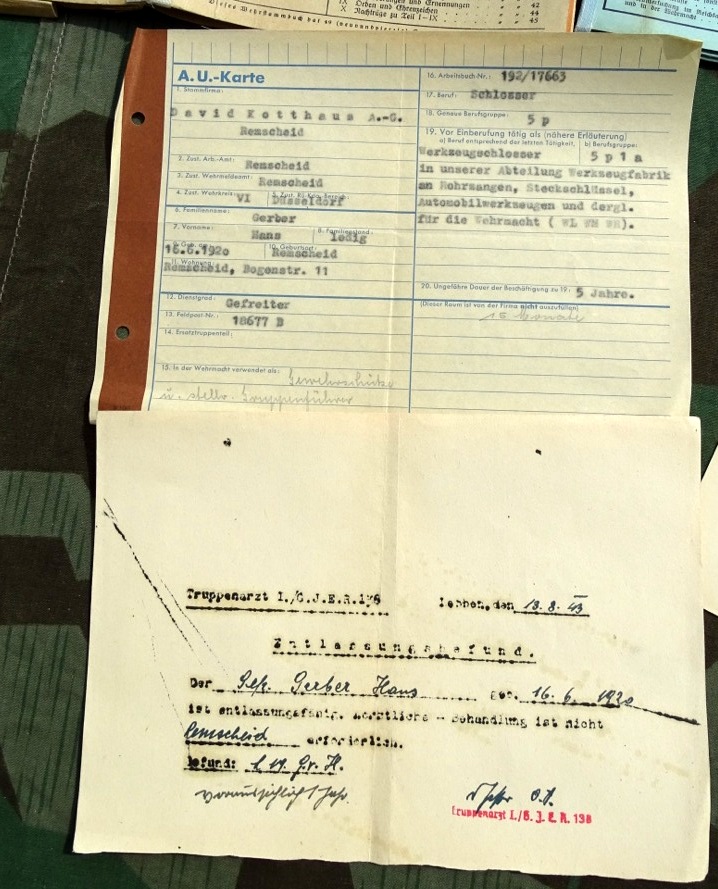 IX Orden und Ehrenzeichen 42
X Nachträge zu Teil I-IX 44
45
und in der Wehrmacht
A.U.-Karte
1. Stammfirma:
David Kotthaus A.-G.
Remscheid
2. Zust. Arb.-Amt: Remscheid
3. Zust. Wehrmeldeamt: Remscheid
4. Zust. Wehrkreis: VI Düsseldorf
6. Familienname: Gerber
7. Vorname: Hans 8. Familienstand: ledig
16.6.1920 10. Geburtsort: Remscheid
11. Wohnung:
Remscheid, Bogenstr. 11
12. Dienstgrad: Gefreiter
13. Feldpost-Nr.: 18677 B
14. Ersatztruppenteil:
15. In der Wehrmacht verwendet als: Gewehrschütze
u. stellv. Gruppenführer
16. Arbeitsbuch-Nr.: 192/17663
17. Beruf: Schlosser
18. Genaue Berufsgruppe: 5 p
19. Vor Einberufung tätig als (nähere Erläuterung)
a) Beruf entsprechend der letzten Tätigkeit, b) Berufsgruppe:
Werkzeugschlosser 5 p 1 a
in unserer Abteilung Werkzeugfabrik
an Rohrzangen, Steckschlüssel,
Automobilwerkzeugen und dergl.
für die Wehrmacht ( WL WM WH).
20. Ungefähre Dauer der Beschäftigung zu 19: 5 Jahre.
(Dieser Raum ist von der Firma nicht auszufüllen)
15 Monate
Truppenarzt I./G.J.E.R.
den 18.8.43
Entlassungsbefund.
Der Gefr. Gerber Hans geb. 16.6.1920
ist entlassungsfähig. Aerztliche - Behandlung ist nicht
Remscheid erforderlich.
Befund:
voraussichtlich 1 Jahr.
Truppenarzt I./G. J. E. R. 138